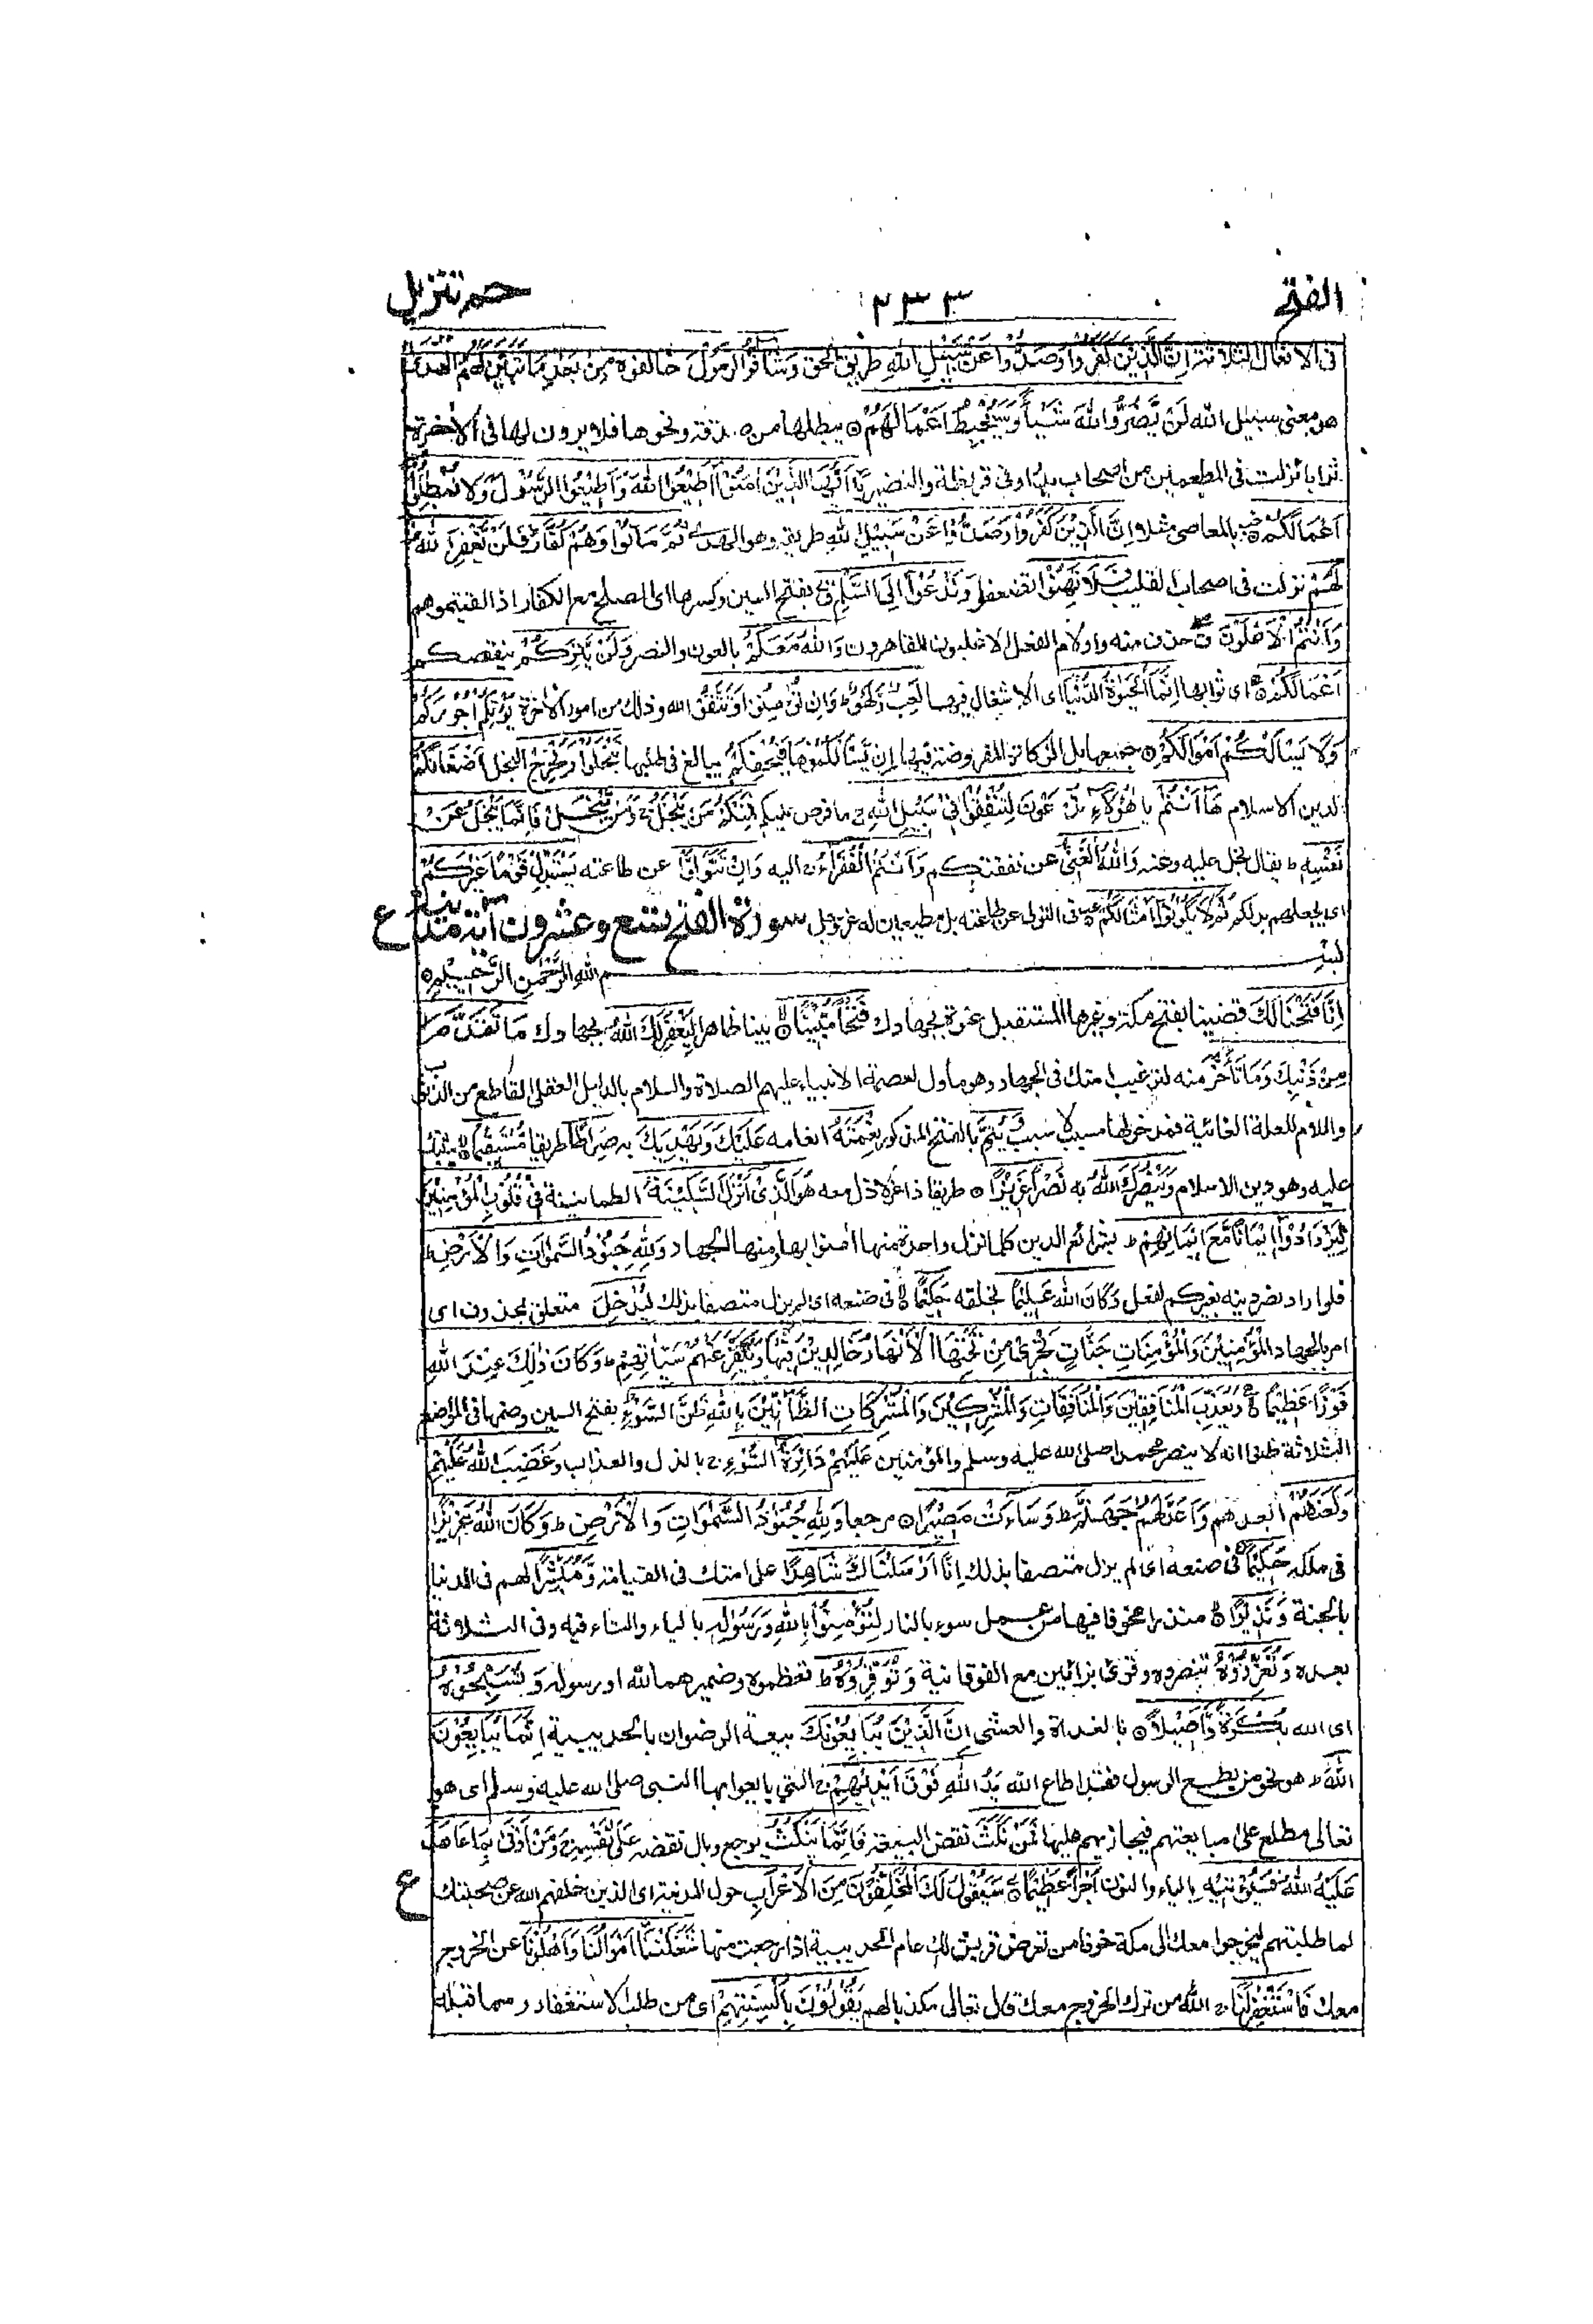 الفتح ٢٣٣ حم تنزيل
فى الافعال الثلاثة اِنَّ الَّذِيْنَ كَفَرُوْا وَصَدُّوْا عَنْ سَبِيْلِ اللهِ طريق الحق وَشَاقُّوا الرَّسُوْلَ خالفوه مِنْ بَعْدِ مَا تَبَيَّنَ لَهُمُ الْهُدٰى
هو معنى سبيل الله لَنْ يَّضُرُّوا اللهَ شَيْـًٔا وَسَيُحْبِطُ اَعْمَالَهُمْ يبطلها من صدقة ونحوها فلا يرون لها فى الاٰخرة
ثوابا نزلت فى المطعمين من اصحاب بدر او فى قريظة والنضير يٰٓاَيُّهَا الَّذِيْنَ اٰمَنُوْٓا اَطِيْعُوا اللهَ وَاَطِيْعُوا الرَّسُوْلَ وَلَا تُبْطِلُوْٓا
اَعْمَالَكُمْ بالمعاصى مثلا اِنَّ الَّذِيْنَ كَفَرُوْا وَصَدُّوْا عَنْ سَبِيْلِ اللهِ طريقه وهو الهدى ثُمَّ مَاتُوْا وَهُمْ كُفَّارٌ فَلَنْ يَّغْفِرَ اللهُ
لَهُمْ نزلت فى اصحاب القليب فَلَا تَهِنُوْا تضعفوا وَتَدْعُوْٓا اِلَى السَّلْمِ بفتح السين وكسرها اى الصلح مع الكفار اذا لقيتموهم
وَاَنْتُمُ الْاَعْلَوْنَ حذف منه واو لام الفعل الاغلبون القاهرون وَاللهُ مَعَكُمْ بالعون والنصر وَلَنْ يَّتِرَكُمْ ينقصكم
اَعْمَالَكُمْ اى ثوابها اِنَّمَا الْحَيٰوةُ الدُّنْيَا اى الاشتغال فيها لَعِبٌ وَّلَهْوٌ وَاِنْ تُؤْمِنُوْا وَتَتَّقُوْا الله وذلك من امور الاٰخرة يُؤْتِكُمْ اُجُوْرَكُمْ
وَلَا يَسْـَٔلْكُمْ اَمْوَالَكُمْ جميعها بل الزكاة المفروضة فيها اِنْ يَّسْـَٔلْكُمُوْهَا فَيُحْفِكُمْ يبالغ فى طلبها تَبْخَلُوْا وَيُخْرِجْ البخل اَضْغَانَكُمْ
لدين الاسلام هٰٓاَنْتُمْ يا هٰٓؤُلَآءِ تُدْعَوْنَ لِتُنْفِقُوْا فِيْ سَبِيْلِ اللهِ ما فرض عليكم فَمِنْكُمْ مَّنْ يَّبْخَلُ وَمَنْ يَّبْخَلْ فَاِنَّمَا يَبْخَلُ عَنْ
نَّفْسِهٖ يقال بخل عليه وعنه وَاللهُ الْغَنِيُّ عن نفقتكم وَاَنْتُمُ الْفُقَرَآءُ اليه وَاِنْ تَتَوَلَّوْا عن طاعته يَسْتَبْدِلْ قَوْمًا غَيْرَكُمْ
اى يجعلهم بدلكم ثُمَّ لَا يَكُوْنُوْٓا اَمْثَالَكُمْ فى التولى عن طاعته بل مطيعين له عزوجل سورة الفتح تسع وعشرون اٰية مدنية ع
بسم الله الرَّحْمٰنِ الرَّحِيْمِ
اِنَّا فَتَحْنَا لَكَ قضينا بفتح مكة وغيرها المستقبل عنوة بجهادك فَتْحًا مُّبِيْنًا بينا ظاهرا لِّيَغْفِرَ لَكَ اللهُ بجهادك مَا تَقَدَّمَ
مِنْ ذَنْبِكَ وَمَا تَاَخَّرَ منه لترغيب امتك فى الجهاد وهو مأول لعصمة الانبياء عليهم الصلاة والسلام بالدليل العقلى القاطع من الذنوب
واللام للعلة الغائية فمدخولها مسبب لا سبب وَيُتِمَّ بالفتح المذكور نِعْمَتَهٗ انعامه عَلَيْكَ وَيَهْدِيَكَ به صِرَاطًا طريقا مُّسْتَقِيْمًا يثبتك
عليه وهو دين الاسلام وَيَنْصُرَكَ اللهُ به نَصْرًا عَزِيْزًا طريقا ذا عز لا ذل معه هُوَ الَّذِيْٓ اَنْزَلَ السَّكِيْنَةَ الطمانينة فِيْ قُلُوْبِ الْمُؤْمِنِيْنَ
لِيَزْدَادُوْٓا اِيْمَانًا مَّعَ اِيْمَانِهِمْ بشرائع الدين كلما نزل واحدة منها اٰمنوا بها ومنها الجهاد وَلِلّٰهِ جُنُوْدُ السَّمٰوَاتِ وَالْاَرْضِ
فلو اراد نصر دينه بغيركم لفعل وَكَانَ اللهُ عَلِيْمًا بخلقه حَكِيْمًا فى صنعه اى لم يزل متصفا بذلك لِيُدْخِلَ متعلق بمحذوف اى
امر بالجهاد الْمُؤْمِنِيْنَ وَالْمُؤْمِنَاتِ جَنَّاتٍ تَجْرِيْ مِنْ تَحْتِهَا الْاَنْهَارُ خَالِدِيْنَ فِيْهَا وَيُكَفِّرَ عَنْهُمْ سَيِّاٰتِهِمْ وَكَانَ ذٰلِكَ عِنْدَ اللهِ
فَوْزًا عَظِيْمًا وَيُعَذِّبَ الْمُنَافِقِيْنَ وَالْمُنَافِقَاتِ وَالْمُشْرِكِيْنَ وَالْمُشْرِكَاتِ الظَّآنِّيْنَ بِاللهِ ظَنَّ السَّوْءِ بفتح السين وضمها فى المواضع
الثلاثة ظنوا انه لا ينصر محمدا صلى الله عليه وسلم والمؤمنين عَلَيْهِمْ دَآئِرَةُ السَّوْءِ بالذل والعذاب وَغَضِبَ اللهُ عَلَيْهِمْ
وَلَعَنَهُمْ ابعدهم وَاَعَدَّ لَهُمْ جَهَنَّمَ وَسَآءَتْ مَصِيْرًا مرجعا وَلِلّٰهِ جُنُوْدُ السَّمٰوَاتِ وَالْاَرْضِ وَكَانَ اللهُ عَزِيْزًا
فى ملكه حَكِيْمًا فى صنعه اى لم يزل متصفا بذلك اِنَّآ اَرْسَلْنَاكَ شَاهِدًا على امتك فى القيامة وَّمُبَشِّرًا لهم فى الدنيا
بالجنة وَّنَذِيْرًا منذرا مخوفا فيها من عمل سوء بالنار لِّتُؤْمِنُوْا بِاللهِ وَرَسُوْلِهٖ بالياء والتاء فيه وفى الثلاثة
بعده وَتُعَزِّرُوْهُ تنصروه وقرئ بزائين مع الفوقانية وَتُوَقِّرُوْهُ تعظموه وضميرهما لله او رسوله وَتُسَبِّحُوْهُ
اى الله بُكْرَةً وَّاَصِيْلًا بالغداة والعشى اِنَّ الَّذِيْنَ يُبَايِعُوْنَكَ بيعة الرضوان بالحديبية اِنَّمَا يُبَايِعُوْنَ
اللهَ هو نحو من يطع الرسول فقد اطاع الله يَدُ اللهِ فَوْقَ اَيْدِيْهِمْ التى بايعوا بها النبى صلى الله عليه وسلم اى هو
تعالى مطلع على مبايعتهم فيجازيهم عليها فَمَنْ نَّكَثَ نقض البيعة فَاِنَّمَا يَنْكُثُ يرجع وبال نقضه عَلٰى نَفْسِهٖ وَمَنْ اَوْفٰى بِمَا عَاهَدَ
عَلَيْهُ اللهَ فَسَيُؤْتِيْهِ بالياء والنون اَجْرًا عَظِيْمًا سَيَقُوْلُ لَكَ الْمُخَلَّفُوْنَ مِنَ الْاَعْرَابِ حول المدينة اى الذين خلفهم الله عن صحبتك ع
لما طلبتهم ليخرجوا معك الى مكة خوفا من تعرض قريش لك عام الحديبية اذا رجعت منها شَغَلَتْنَآ اَمْوَالُنَا وَاَهْلُوْنَا عن الخروج
معك فَاسْتَغْفِرْ لَنَا الله من ترك الخروج معك قال تعالى مكذبا لهم يَقُوْلُوْنَ بِاَلْسِنَتِهِمْ اى من طلب الاستغفار وما قبله